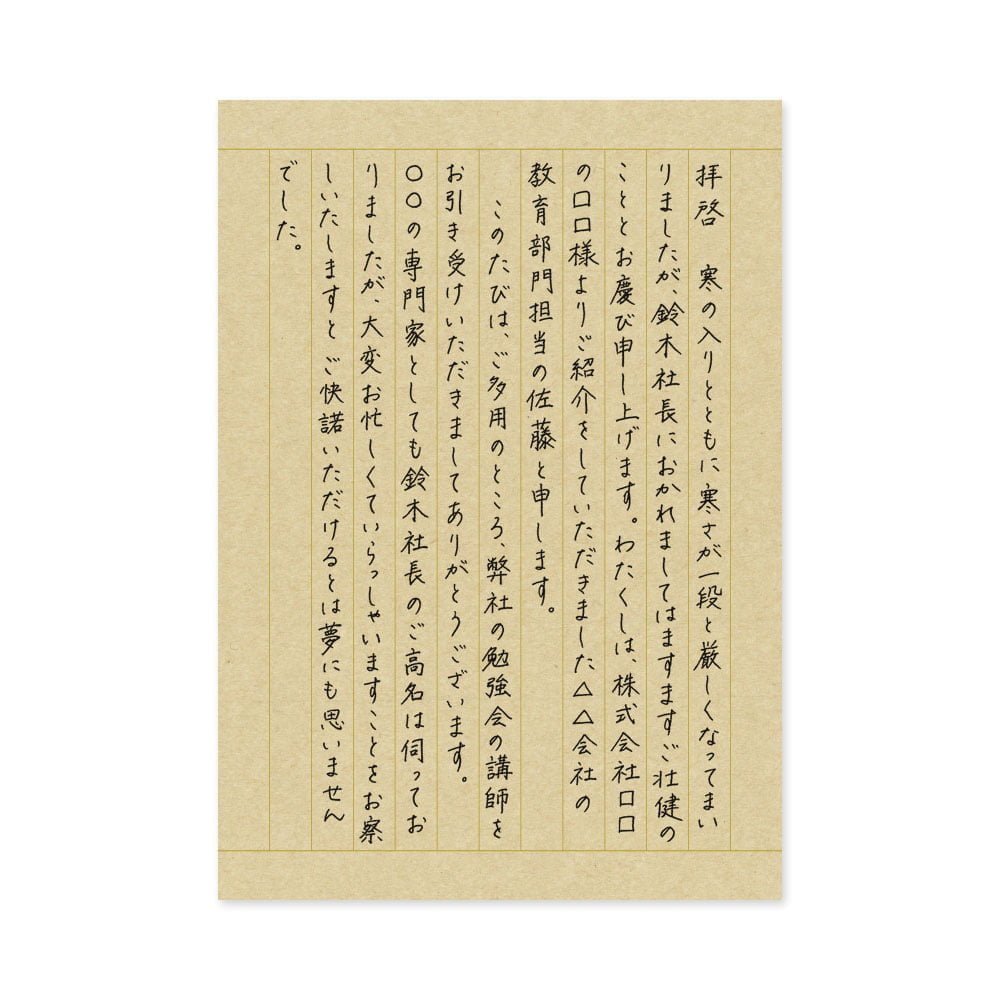 拝啓　寒の入りとともに寒さが一段と厳しくなってまい
りましたが、鈴木社長におかれましてはますますご壮健の
こととお慶び申し上げます。わたくしは、株式会社口口
の口口様よりご紹介をしていただきました△△会社の
教育部門担当の佐藤と申します。
　このたびは、ご多用のところ、弊社の勉強会の講師を
お引き受けいただきましてありがとうございます。
〇〇の専門家としても鈴木社長のご高名は伺ってお
りましたが、大変お忙しくていらっしゃいますことをお察
しいたしますとご快諾いただけるとは夢にも思いません
でした。